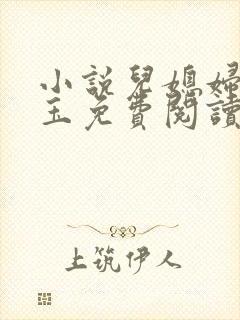 小說兒媳婦
玉免費閱讀
上筑伊人